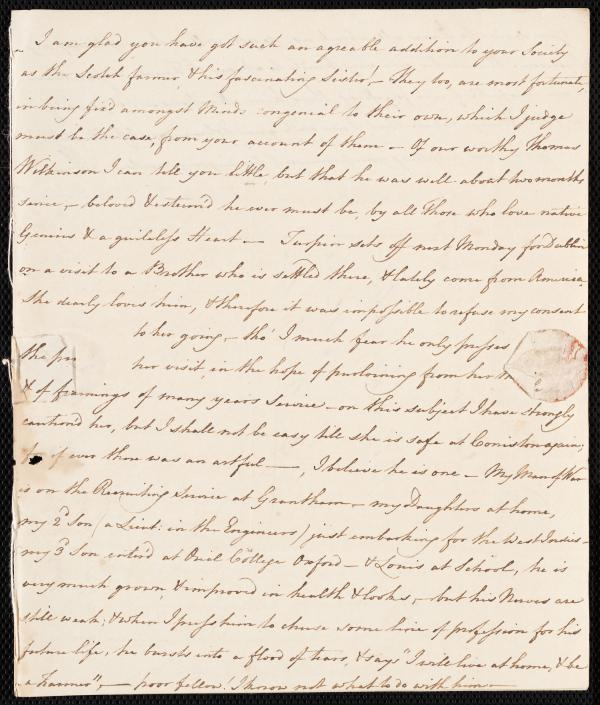 - I am glad you have got such an agreable addition to your Society
as the Scotch farmer, & his fascinating Sister! - They too, are most fortunate,
in being fixd amongst Minds congenial to their own, which I judge
must be the case, from your account of them - Of our worthy Thomas
Wilkinson I can tell you little, but that he was well about two months
since, - beloved & esteem'd he ever must be, by all Those who love native
Genius & a guileless Heart - Turpin sets off next Monday for Dublin
on a visit to a Brother who is settled there, & lately come from America
She dearly loves him, & therefore it was impossible to refuse my consent
to her going, - tho' I much fear he only presses
her visit, in the hope of purloining from her
the
& of framings of many years Service - on this subject I have strongly
caution'd her, but I shall not be easy till she is safe at Coniston again,
for if ever there was an artful —, I believe he is one - My Man of War
is on the Recruiting Service at Grantham - my Daughters at home,
my 2d Son (a Lieut: in the Engineers) just embarking for the West Indies -
my 3d Son enter'd at Oriel College Oxford - & Louis at School, he is
very much grown, & improved in health & looks, - but his Nerves are
still weak; & when I press him to chuse some line of profession for his
future life, he bursts into a flood of tears, & says "I will live at home, & be
a Farmer", - poor fellow! I know not what to do with him -